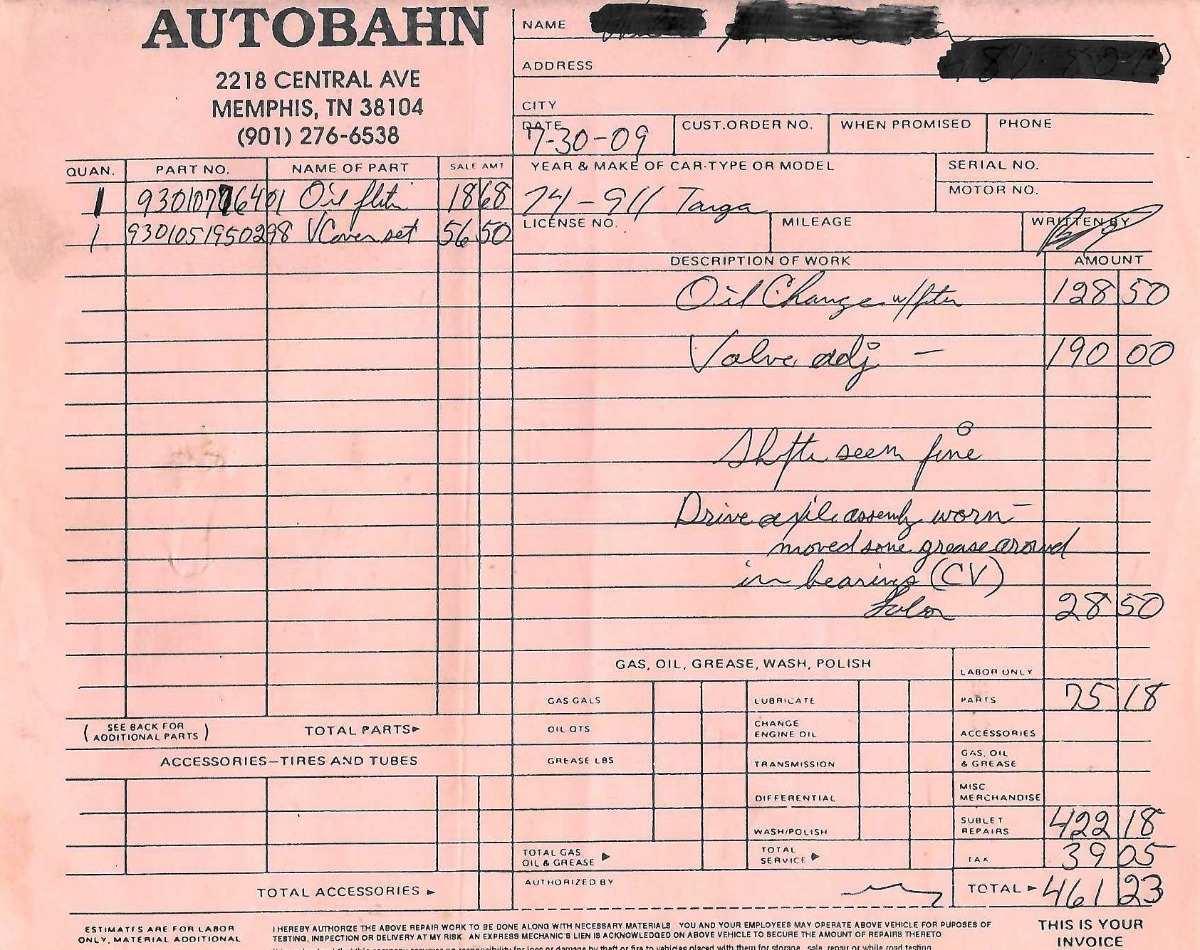 AUTOBAHN
2218 CENTRAL AVE
MEMPHIS, TN 38104
(901) 276-6538
NAME
ADDRESS
CITY
DATE 7-30-09 CUST.ORDER NO. WHEN PROMISED PHONE
YEAR & MAKE OF CAR-TYPE OR MODEL SERIAL NO.
74-911 Targa MOTOR NO.
LICENSE NO. MILEAGE WRITTEN BY
QUAN. PART NO. NAME OF PART SALE AMT
1 93010776401 Oil 18 68
1 9301051950298 VCover set 56 50
DESCRIPTION OF WORK AMOUNT
Oil Change w/ 128 50
Valve adj — 190 00
seem fine
Drive worn
moved some grease around
in bearings (CV)
28 50
GAS, OIL, GREASE, WASH, POLISH LABOR ONLY
GAS GALS LUBRICATE PARTS 75 18
OIL QTS CHANGE ENGINE OIL ACCESSORIES
GREASE LBS TRANSMISSION GAS, OIL & GREASE
DIFFERENTIAL MISC MERCHANDISE
WASH/POLISH SUBLET REPAIRS 422 18
TOTAL GAS OIL & GREASE ► TOTAL SERVICE ► TAX 39 05
AUTHORIZED BY TOTAL ► 461 23
( SEE BACK FOR ADDITIONAL PARTS ) TOTAL PARTS ►
ACCESSORIES—TIRES AND TUBES
TOTAL ACCESSORIES ►
ESTIMATES ARE FOR LABOR
ONLY, MATERIAL ADDITIONAL
I HEREBY AUTHORIZE THE ABOVE REPAIR WORK TO BE DONE ALONG WITH NECESSARY MATERIALS YOU AND YOUR EMPLOYEES MAY OPERATE ABOVE VEHICLE FOR PURPOSES OF
TESTING, INSPECTION OR DELIVERY AT MY RISK AN EXPRESS MECHANIC'S LIEN IS ACKNOWLEDGED ON ABOVE VEHICLE TO SECURE THE AMOUNT OF REPAIRS THERETO
THIS IS YOUR
INVOICE